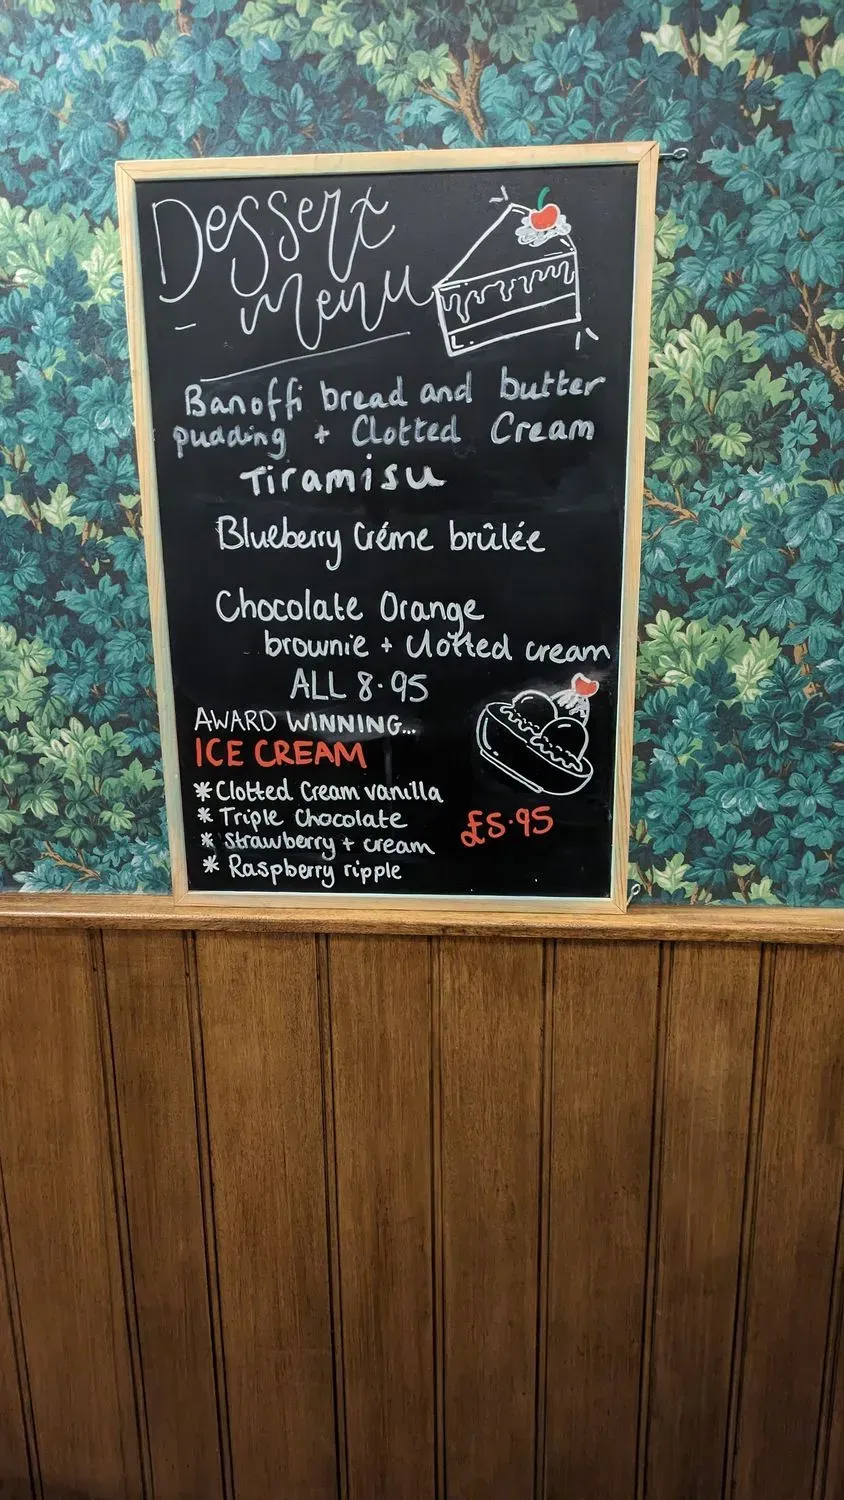 Dessert
menu
Banoffi bread and butter
pudding + Clotted Cream
Tiramisu
Blueberry Créme brûlée
Chocolate Orange
brownie + Clotted cream
ALL 8.95
AWARD WINNING...
ICE CREAM
* Clotted Cream vanilla
* Triple Chocolate
£5.95
* Strawberry + cream
* Raspberry ripple